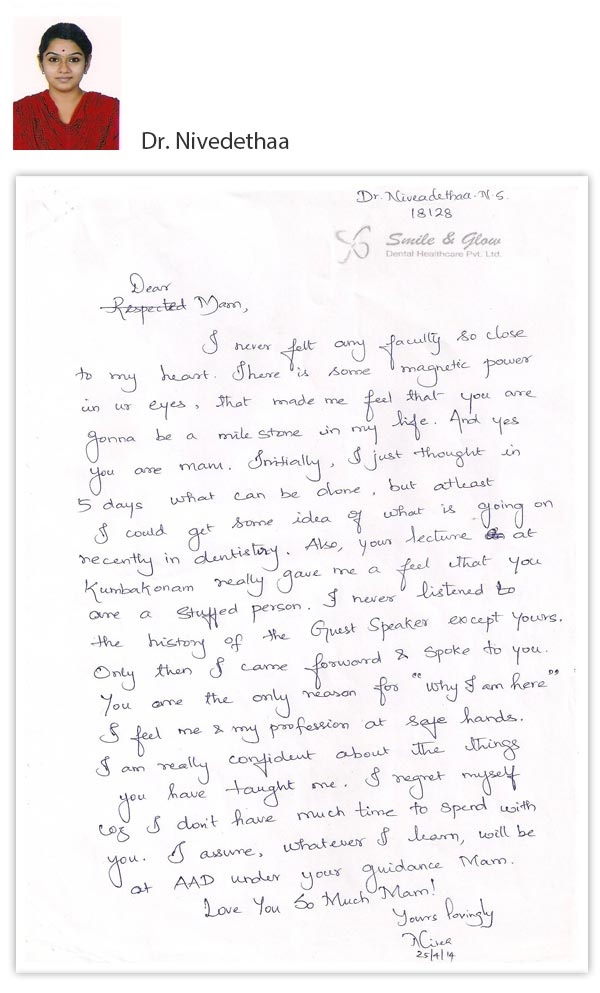 Dr. Nivedethaa
Dr. Niveadethaa. N. S.
18128
Smile & Glow
Dental Healthcare Pvt. Ltd.
Dear
Respected Mam,
I never felt any faculty so close
to my heart. There is some magnetic power
in ur eyes, that made me feel that you are
gonna be a mile stone in my life. And yes
you are mam. Initially, I just thought in
5 days what can be done, but atleast
I could get some idea of what is going on
recently in dentistry. Also, your lecture at
Kumbakonam really gave me a feel that you
are a stuffed person. I never listened to
the history of the Guest Speaker except yours.
Only then I came forward & spoke to you.
You are the only reason for "why I am here"
I feel me & my profession at safe hands.
I am really confident about the things
you have taught me. I regret myself
coz I don't have much time to spend with
you. I assume, whatever I learn, will be
at AAD under your guidance Mam.
Love You So Much Mam!
Yours lovingly
Niva
25/4/14